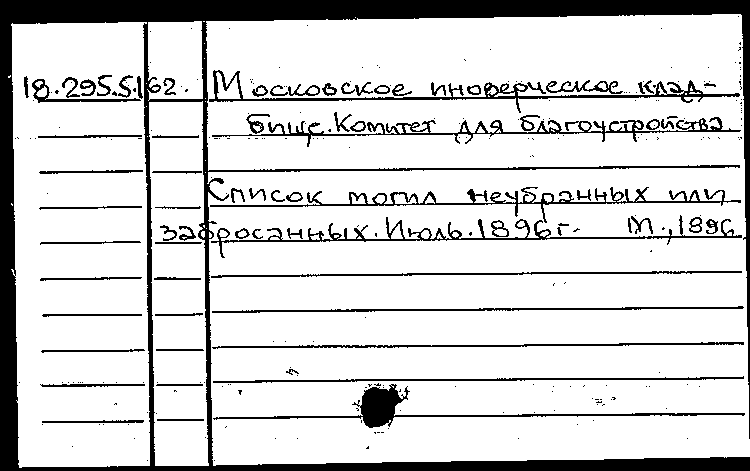 18.295.5.162. Московское иноверческое клад-
бище. Комитет для благоустройства.
Список могил неубранных или
забросанных. Июль. 1896г. М., 1896